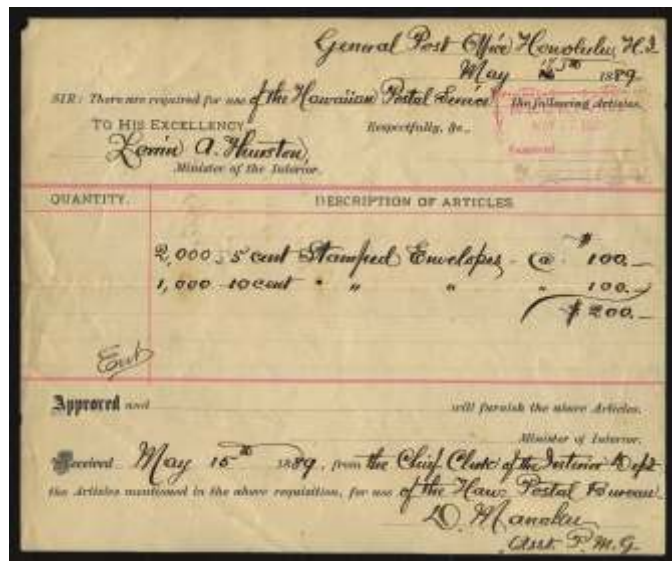 General Post Office Honolulu, H.I.
May 15th 1889
SIR: There are required for use of the Hawaiian Postal Service the following Articles.
TO HIS EXCELLENCY Respectfully, &c.,
Lorrin A. Thurston,
Minister of the Interior.
QUANTITY. DESCRIPTION OF ARTICLES
2,000 5 cent Stamped Envelopes @ $100.—
1,000 10 cent " " " " 100.—
$200.—
Ent
Approved and will furnish the above Articles.
Minister of Interior.
Received May 15th 1889, from the Chief Clerk of the Interior Dept
the Articles mentioned in the above requisition, for use of the Haw: Postal Bureau.
D. Manaku
Asst. P.M.G.